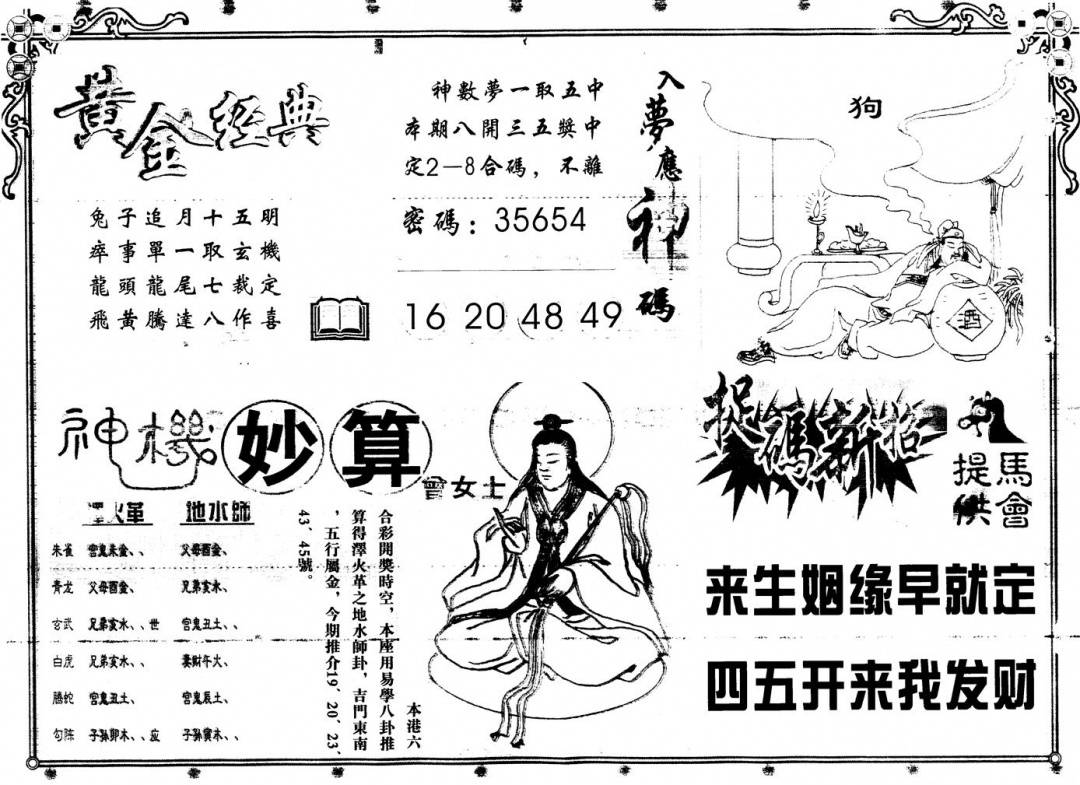 黄金经典
兔子追月十五明
瘁事單一取玄機
龍頭龍尾七裁定
飛黃騰達八作喜
神數夢一取五中
本期八開三五獎中
定2—8合碼，不離
密碼：35654
16 20 48 49
入夢應神碼
狗
酒
神機妙算
曾女士
澤火革 地水師
朱雀 官鬼未金、、 父母酉金、
青龙 父母酉金、 兄弟亥水、
玄武 兄弟亥水、、世 官鬼丑土、、
白虎 兄弟亥水、、 妻财午火、
腾蛇 官鬼丑土、 官鬼辰土、
勾陈 子孙卯木、、应 子孙寅木、、
本港六
合彩開獎時空，本座用易學八卦推
算得澤火革之地水師卦，吉門東南
，五行屬金，今期推介19、20、23、
43、45號。
捉碼新招
馬會
提供
来生姻缘早就定
四五开来我发财